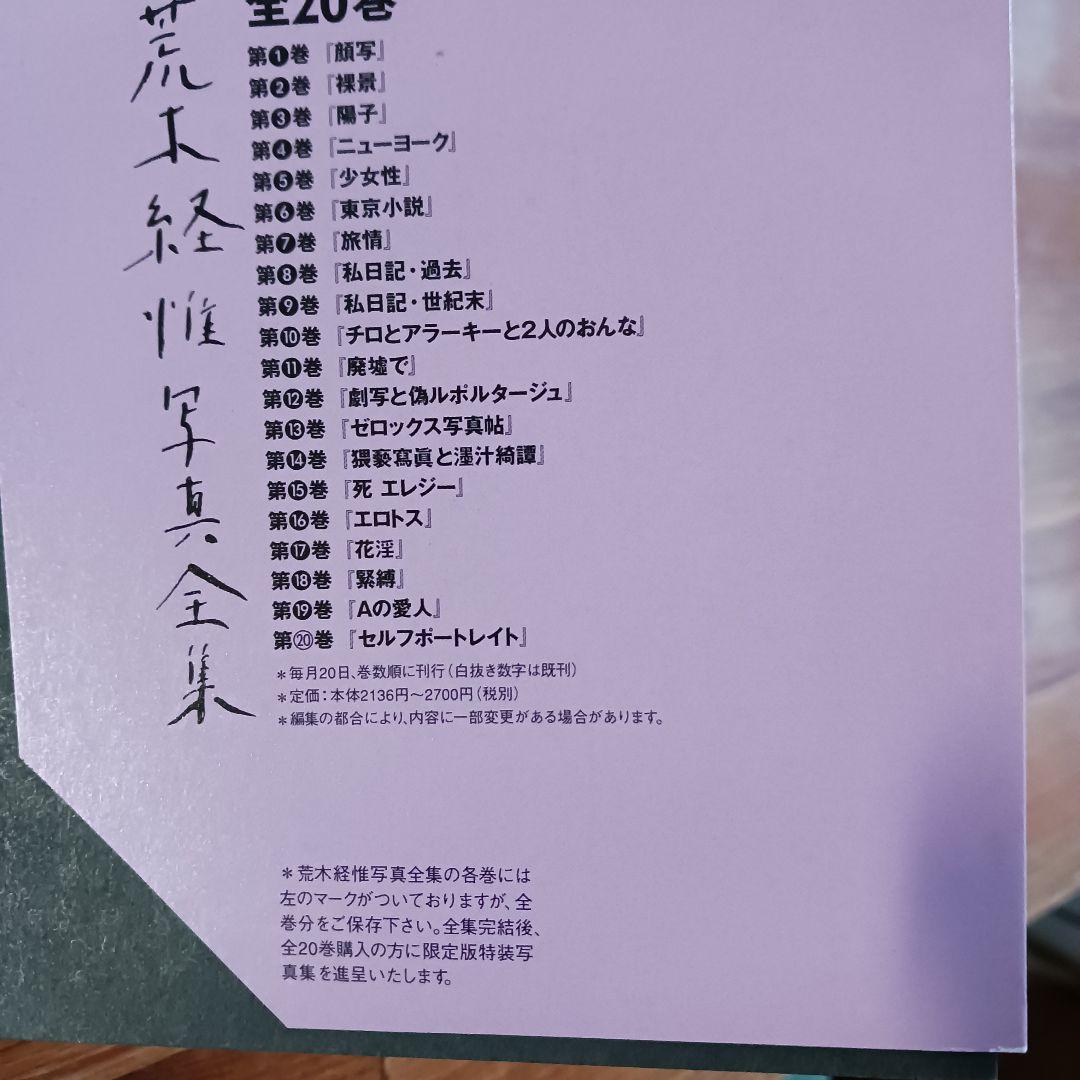 荒木経惟写真全集
全20巻
第❶巻『顔写』
第❷巻『裸景』
第❸巻『陽子』
第❹巻『ニューヨーク』
第❺巻『少女性』
第❻巻『東京小説』
第❼巻『旅情』
第❽巻『私日記・過去』
第❾巻『私日記・世紀末』
第❿巻『チロとアラーキーと2人のおんな』
第⓫巻『廃墟で』
第⓬巻『劇写と偽ルポルタージュ』
第⓭巻『ゼロックス写真帖』
第⓮巻『猥褻寫眞と墨汁綺譚』
第⓯巻『死 エレジー』
第⓰巻『エロトス』
第⓱巻『花淫』
第⓲巻『緊縛』
第⓳巻『Aの愛人』
第⑳巻『セルフポートレイト』
＊毎月20日、巻数順に刊行（白抜き数字は既刊）
＊定価：本体2136円〜2700円（税別）
＊編集の都合により、内容に一部変更がある場合があります。
＊荒木経惟写真全集の各巻には
左のマークがついておりますが、全
巻分をご保存下さい。全集完結後、
全20巻購入の方に限定版特装写
真集を進呈いたします。